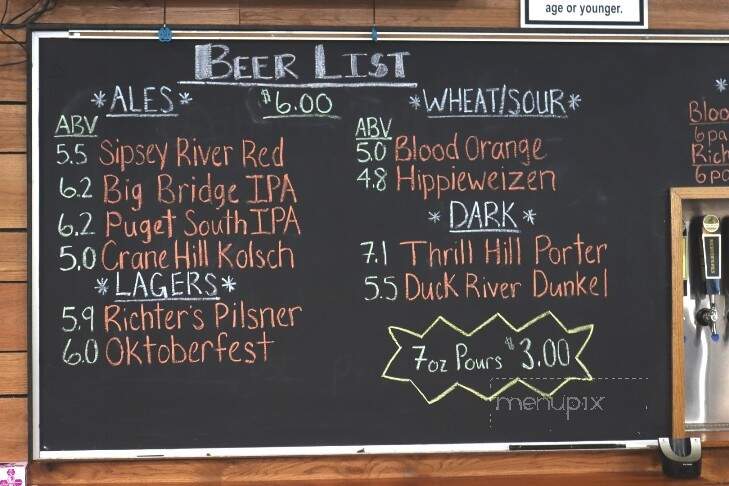 age or younger.
BEER LIST
$6.00
*ALES*
ABV
5.5 Sipsey River Red
6.2 Big Bridge IPA
6.2 Puget South IPA
5.0 Crane Hill Kolsch
*LAGERS*
5.9 Richter's Pilsner
6.0 Oktoberfest
*WHEAT/SOUR*
ABV
5.0 Blood Orange
4.8 Hippieweizen
*DARK*
7.1 Thrill Hill Porter
5.5 Duck River Dunkel
7oz Pours $3.00
*
Bloo
6pa
Rich
6pa
menupix